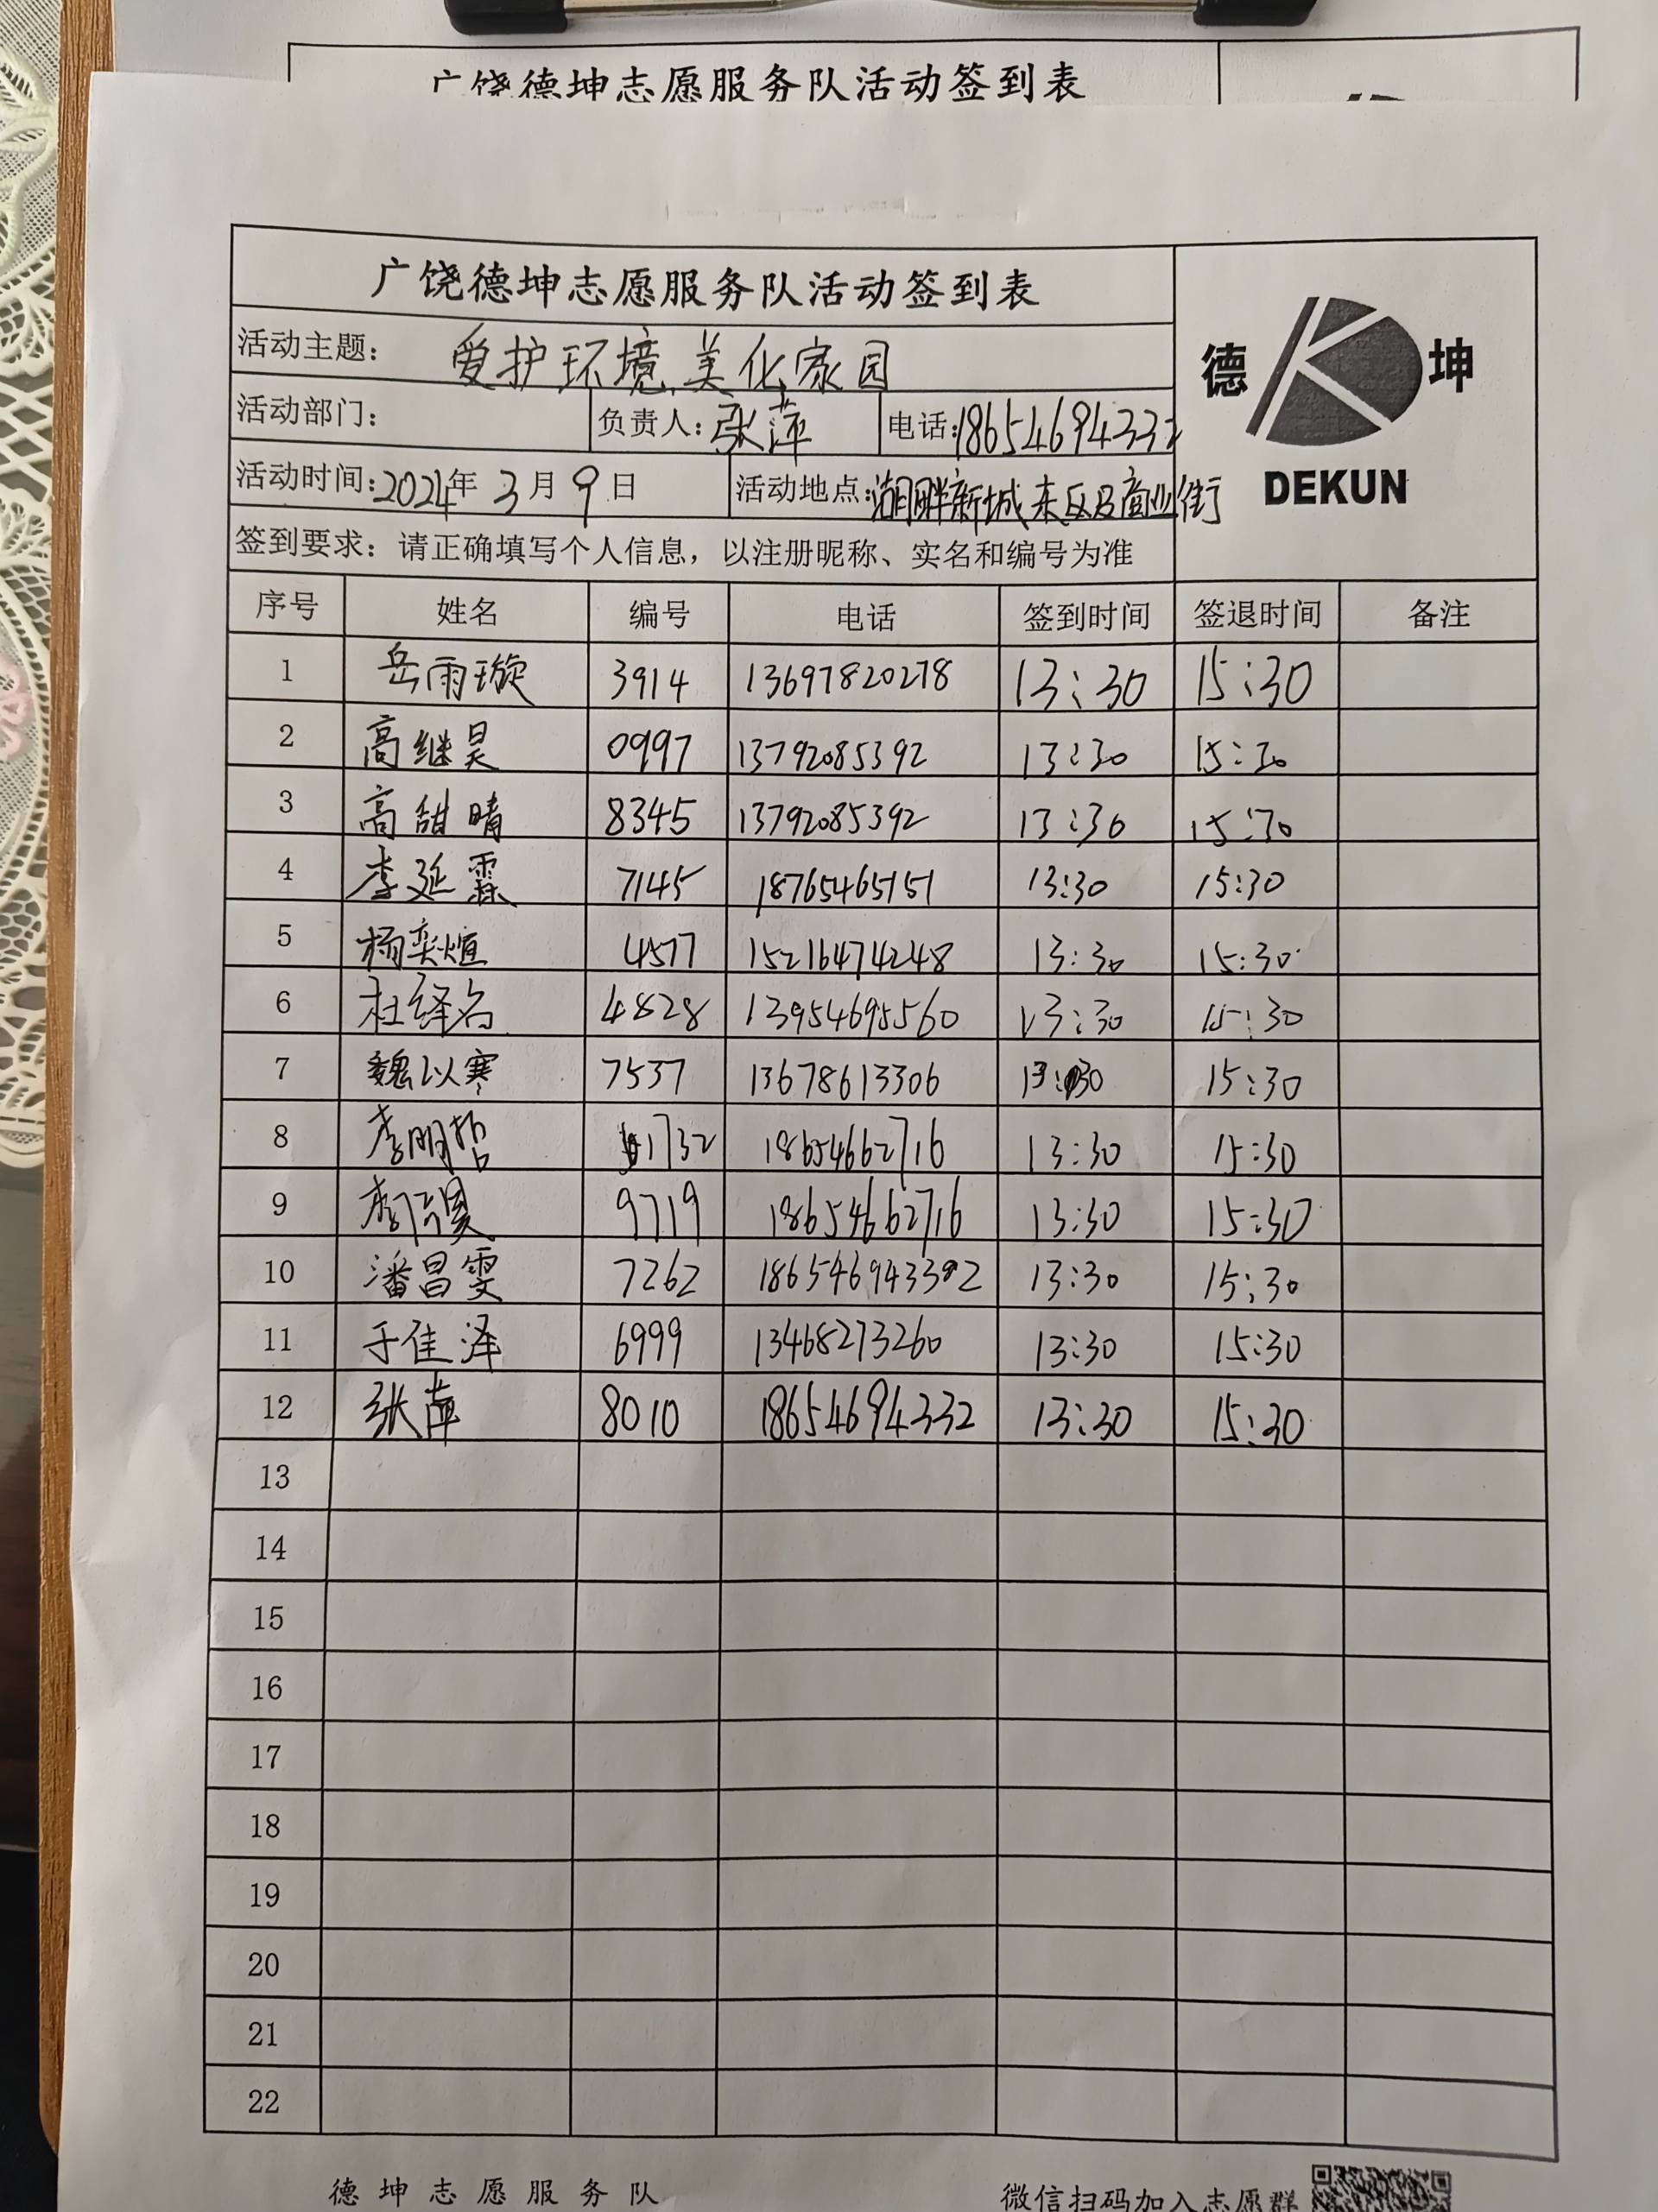 广饶德坤志愿服务队活动签到表
广饶德坤志愿服务队活动签到表
活动主题： 爱护环境,美化家园
德 坤
DEKUN
活动部门： 负责人：张萍 电话：18654694332
活动时间：2024年 3月 9日 活动地点：湖畔新城东区及商业街
签到要求：请正确填写个人信息，以注册昵称、实名和编号为准
序号 姓名 编号 电话 签到时间 签退时间 备注
1 岳雨璇 3914 13697820278 13:30 15:30
2 高继昊 0997 13792085392 13:30 15:30
3 高甜晴 8345 13792085392 13:30 15:30
4 李延霖 7145 18765465151 13:30 15:30
5 杨奕煊 4577 15216474248 13:30 15:30
6 杜绎名 4828 13954695560 13:30 15:30
7 魏以寒 7537 13678613306 13:30 15:30
8 李明哲 1732 18654662716 13:30 15:30
9 9719 18654662716 13:30 15:30
10 潘昌雯 7262 13:30 15:30
11 于佳泽 6999 13468273260 13:30 15:30
12 张萍 8010 18654694332 13:30 15:30
13
14
15
16
17
18
19
20
21
22
德坤志愿服务队 微信扫码加入志愿群